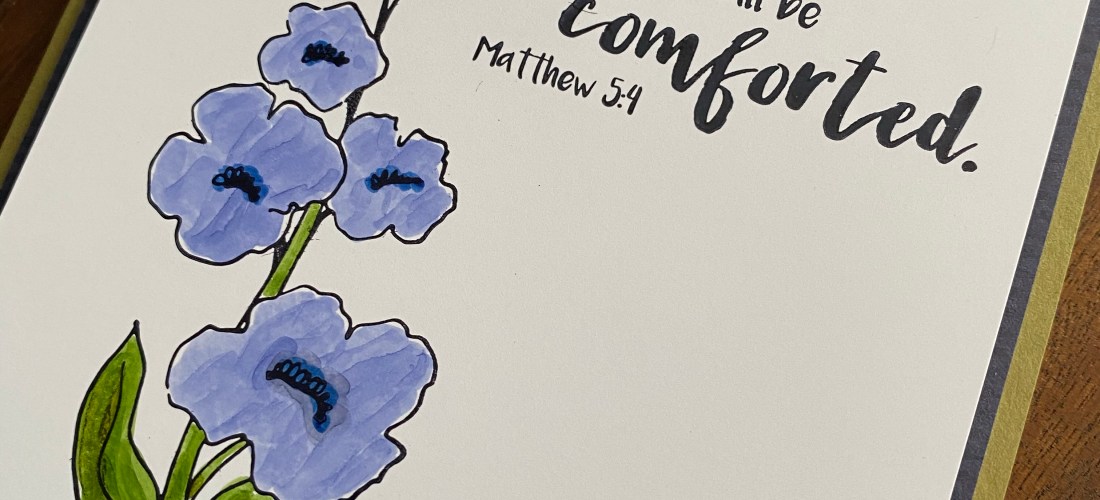 be
comforted.
Matthew 5:4